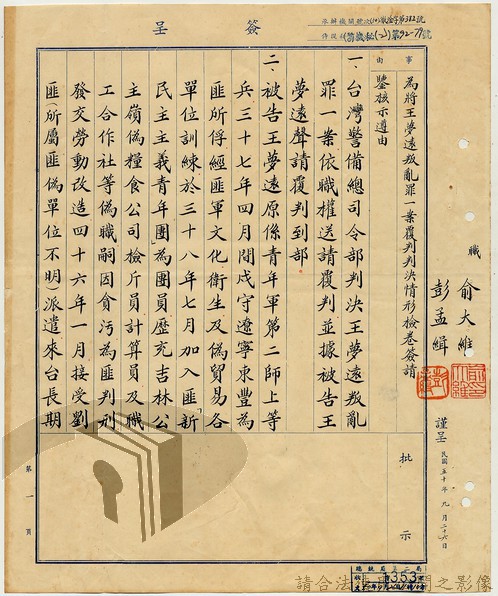 簽呈
事由
為將王夢遠叛亂罪一案覆判判決情形檢卷簽請
鑒核示遵由
一、台灣警備總司令部判決王夢遠叛亂
罪一案依職權送請覆判並據被告王
夢遠聲請覆判到部
二、被告王夢遠原係青年軍第二師上等
兵三十七年四月間戍守遼寧東豐為
匪所俘經匪軍文化衛生及偽貿易各
單位訓練於三十八年七月加入匪「新
民主主義青年團」為團員歷充吉林公
主嶺偽糧食公司檢斤員計算員及職
工合作社等偽職嗣因貪污為匪判刑
發交勞動改造四十六年一月接受劉
匪(所屬匪偽單位不明)派遣來台長期
職
俞大維
彭孟緝
謹呈
民國五十年九月二十六日
批示
第一頁
1353